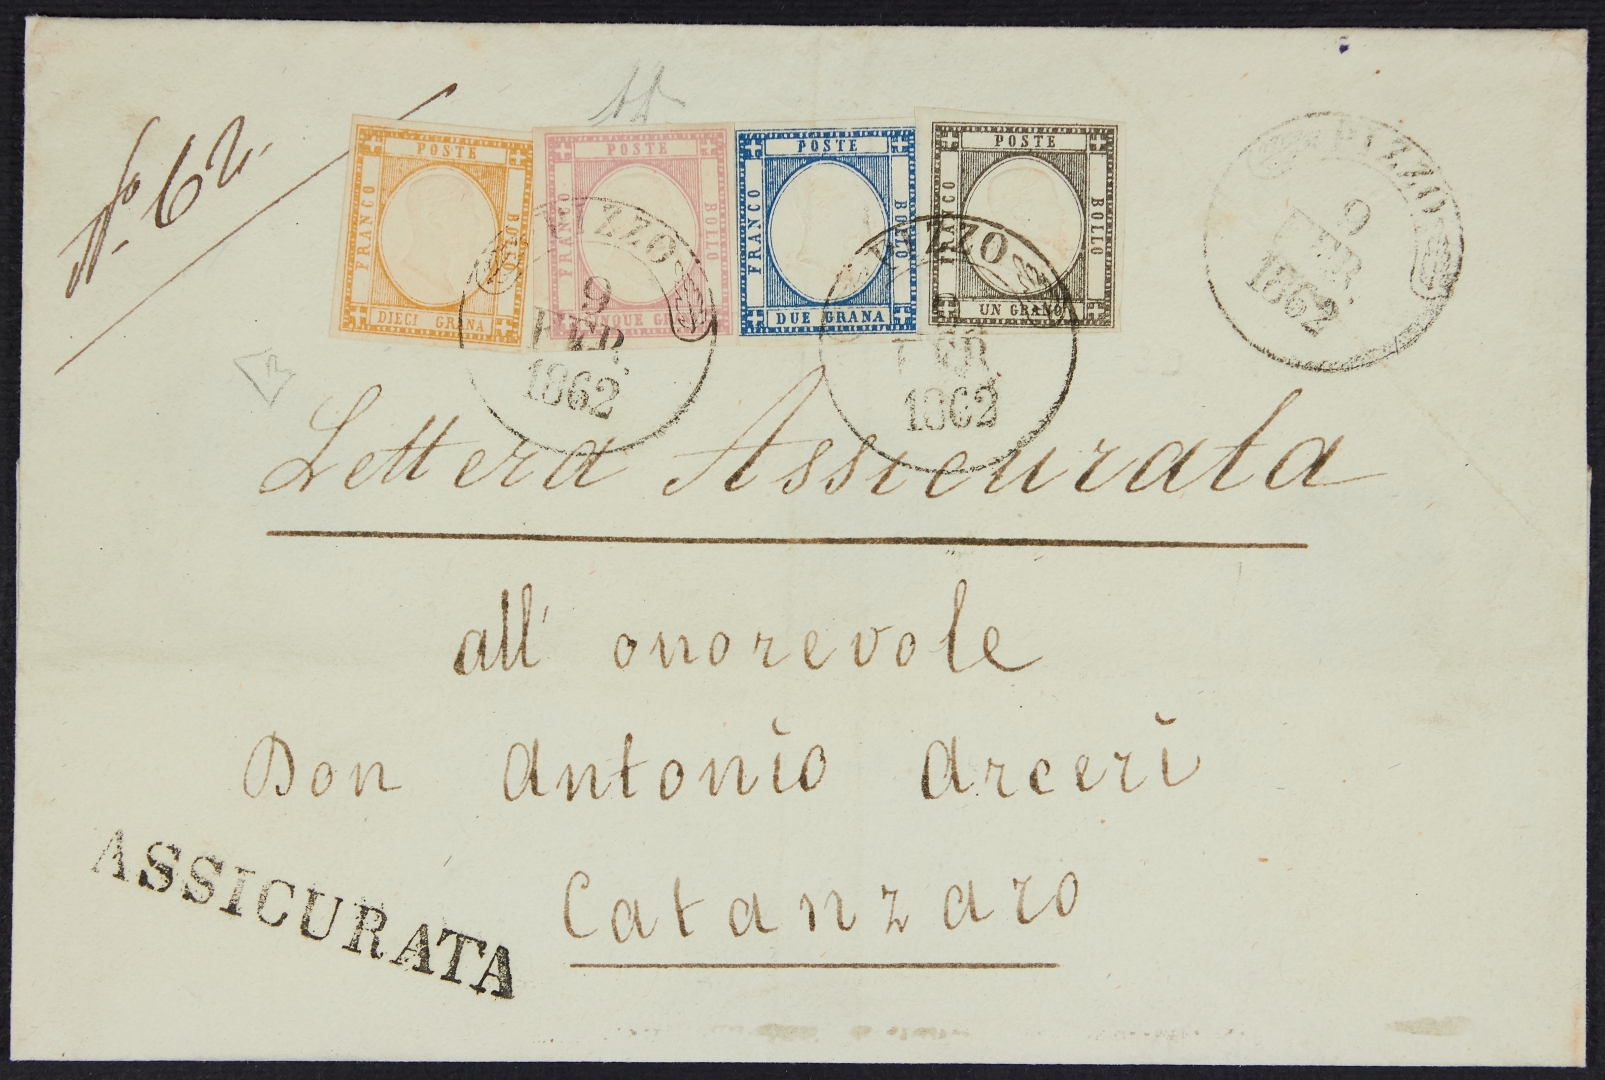 No. 62.
POSTE
FRANCO
BOLLO
DIECI GRANA
POSTE
FRANCO
BOLLO
CINQUE GRANA
POSTE
FRANCO
BOLLO
DUE GRANA
POSTE
FRANCO
BOLLO
UN GRANO
PIZZO
9
FEB.
1862
PIZZO
FEB.
1862
PIZZO
9
FEB.
1862
Lettera Assicurata
all' onorevole
Don Antonio Arceri
Catanzaro
ASSICURATA